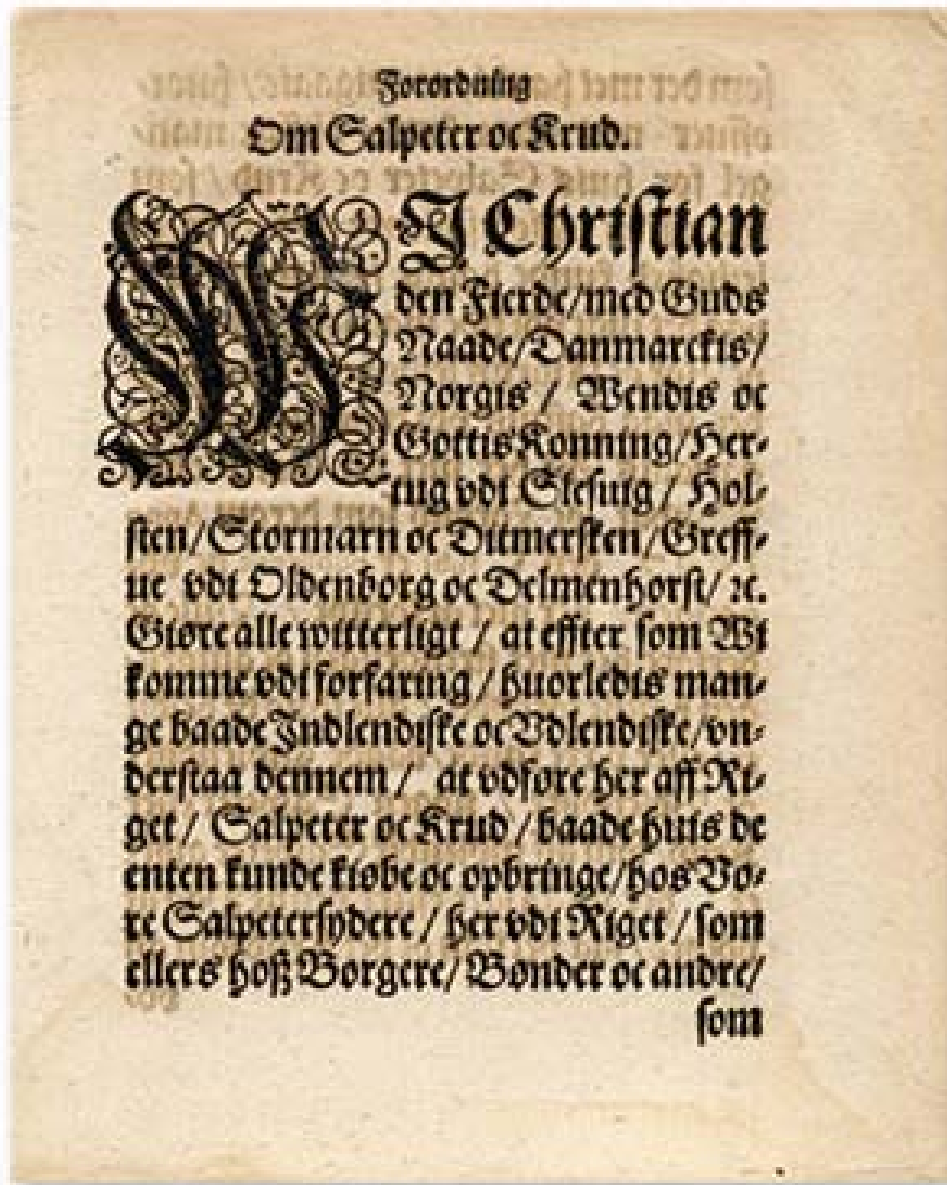 Forordning
Om Salpeter oc Krud.
WJ Christian
den Fierde/med Guds
Naade/Danmarckis/
Norgis / Wendis oc
Gottis Konning/Her-
tug vdi Slesuig / Hol-
sten/Stormarn oc Ditmersken/Greff-
ue vdi Oldenborg oc Delmenhorst/ ꝛc.
Giøre alle witterligt / at effter som Wi
komme vdi forfaring / huorledis man-
ge baade Indlendiske oc Vdlendiske/vn-
derstaa dennem / at vdføre her aff Ri-
get / Salpeter oc Krud / baade huis de
enten kunde kiøbe oc opbringe/hos Vo-
re Salpetersydere / her vdi Riget / som
ellers hoß Borgere/ Bønder oc andre/
som